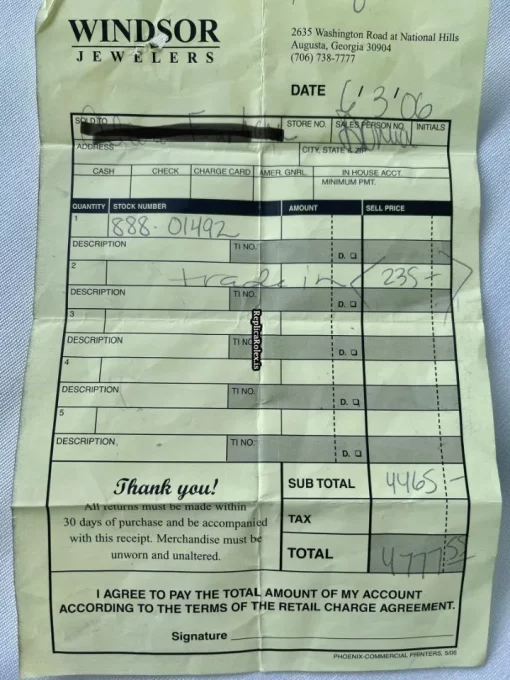 WINDSOR
JEWELERS
2635 Washington Road at National Hills
Augusta, Georgia 30904
(706) 738-7777
DATE 6/3/06
SOLD TO
STORE NO. SALES PERSON NO. INITIALS
ADDRESS
CITY, STATE & ZIP
CASH CHECK CHARGE CARD AMER. GNRL. IN HOUSE ACCT.
MINIMUM PMT.
QUANTITY STOCK NUMBER AMOUNT SELL PRICE
1 888-01492
DESCRIPTION TI NO. D.
2 trade in <235->
DESCRIPTION TI NO. D.
3
DESCRIPTION TI NO. D.
4
DESCRIPTION TI NO. D.
5
DESCRIPTION TI NO. D.
ReplicaRolex.is
Thank you!
All returns must be made within
30 days of purchase and be accompanied
with this receipt. Merchandise must be
unworn and unaltered.
SUB TOTAL 4465-
TAX
TOTAL 4777.55
I AGREE TO PAY THE TOTAL AMOUNT OF MY ACCOUNT
ACCORDING TO THE TERMS OF THE RETAIL CHARGE AGREEMENT.
Signature
PHOENIX-COMMERCIAL PRINTERS, 5/05